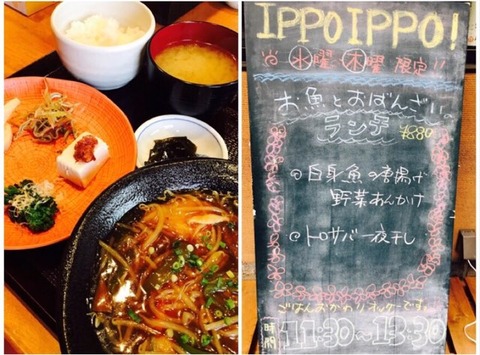 IPPO IPPO!
㊌曜 ㊍曜 限定!!
お魚とおばんざい
ランチ ¥880
◎白身魚の唐揚げ
野菜あんかけ
◎トロサバ一夜干し
ごはんおかわりオッケーです。
時間 11:30〜13:30